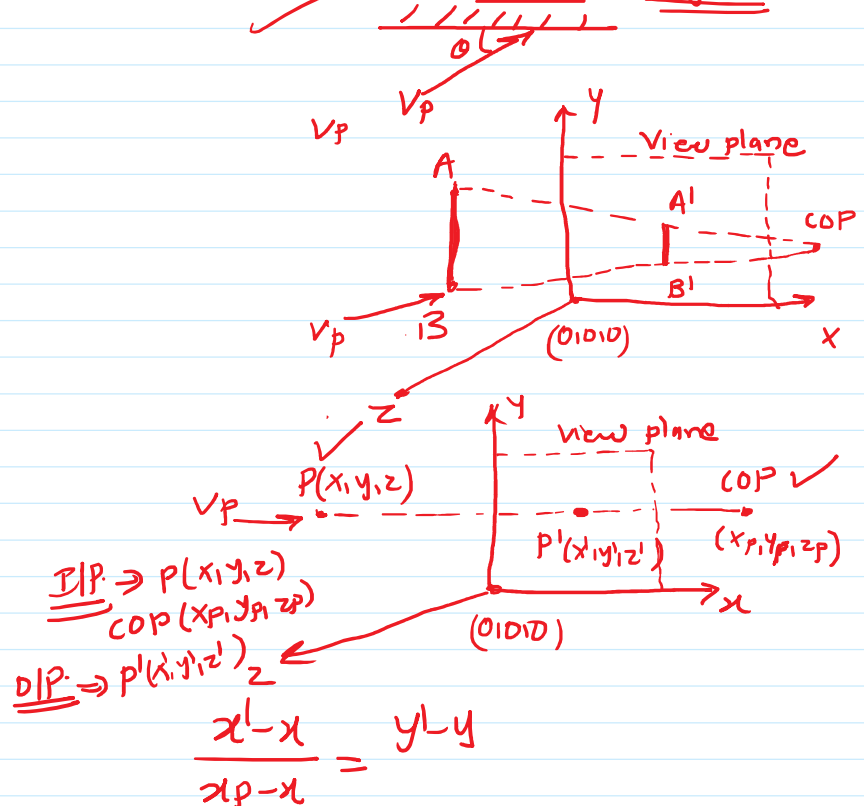 θ
Vp
Vp
Y
View plane
A
A'
COP
Vp
B
B'
(0,0,0)
X
Z
Y
View plane
P(x,y,z)
COP ✓
Vp
P'(x',y',z')
(xp,yp,zp)
I/P. ⇒ P(x,y,z)
COP(xp,yp,zp)
x
(0,0,0)
O/P. ⇒ P'(x',y',z')
z
x'-x
y'-y
=
xp-x